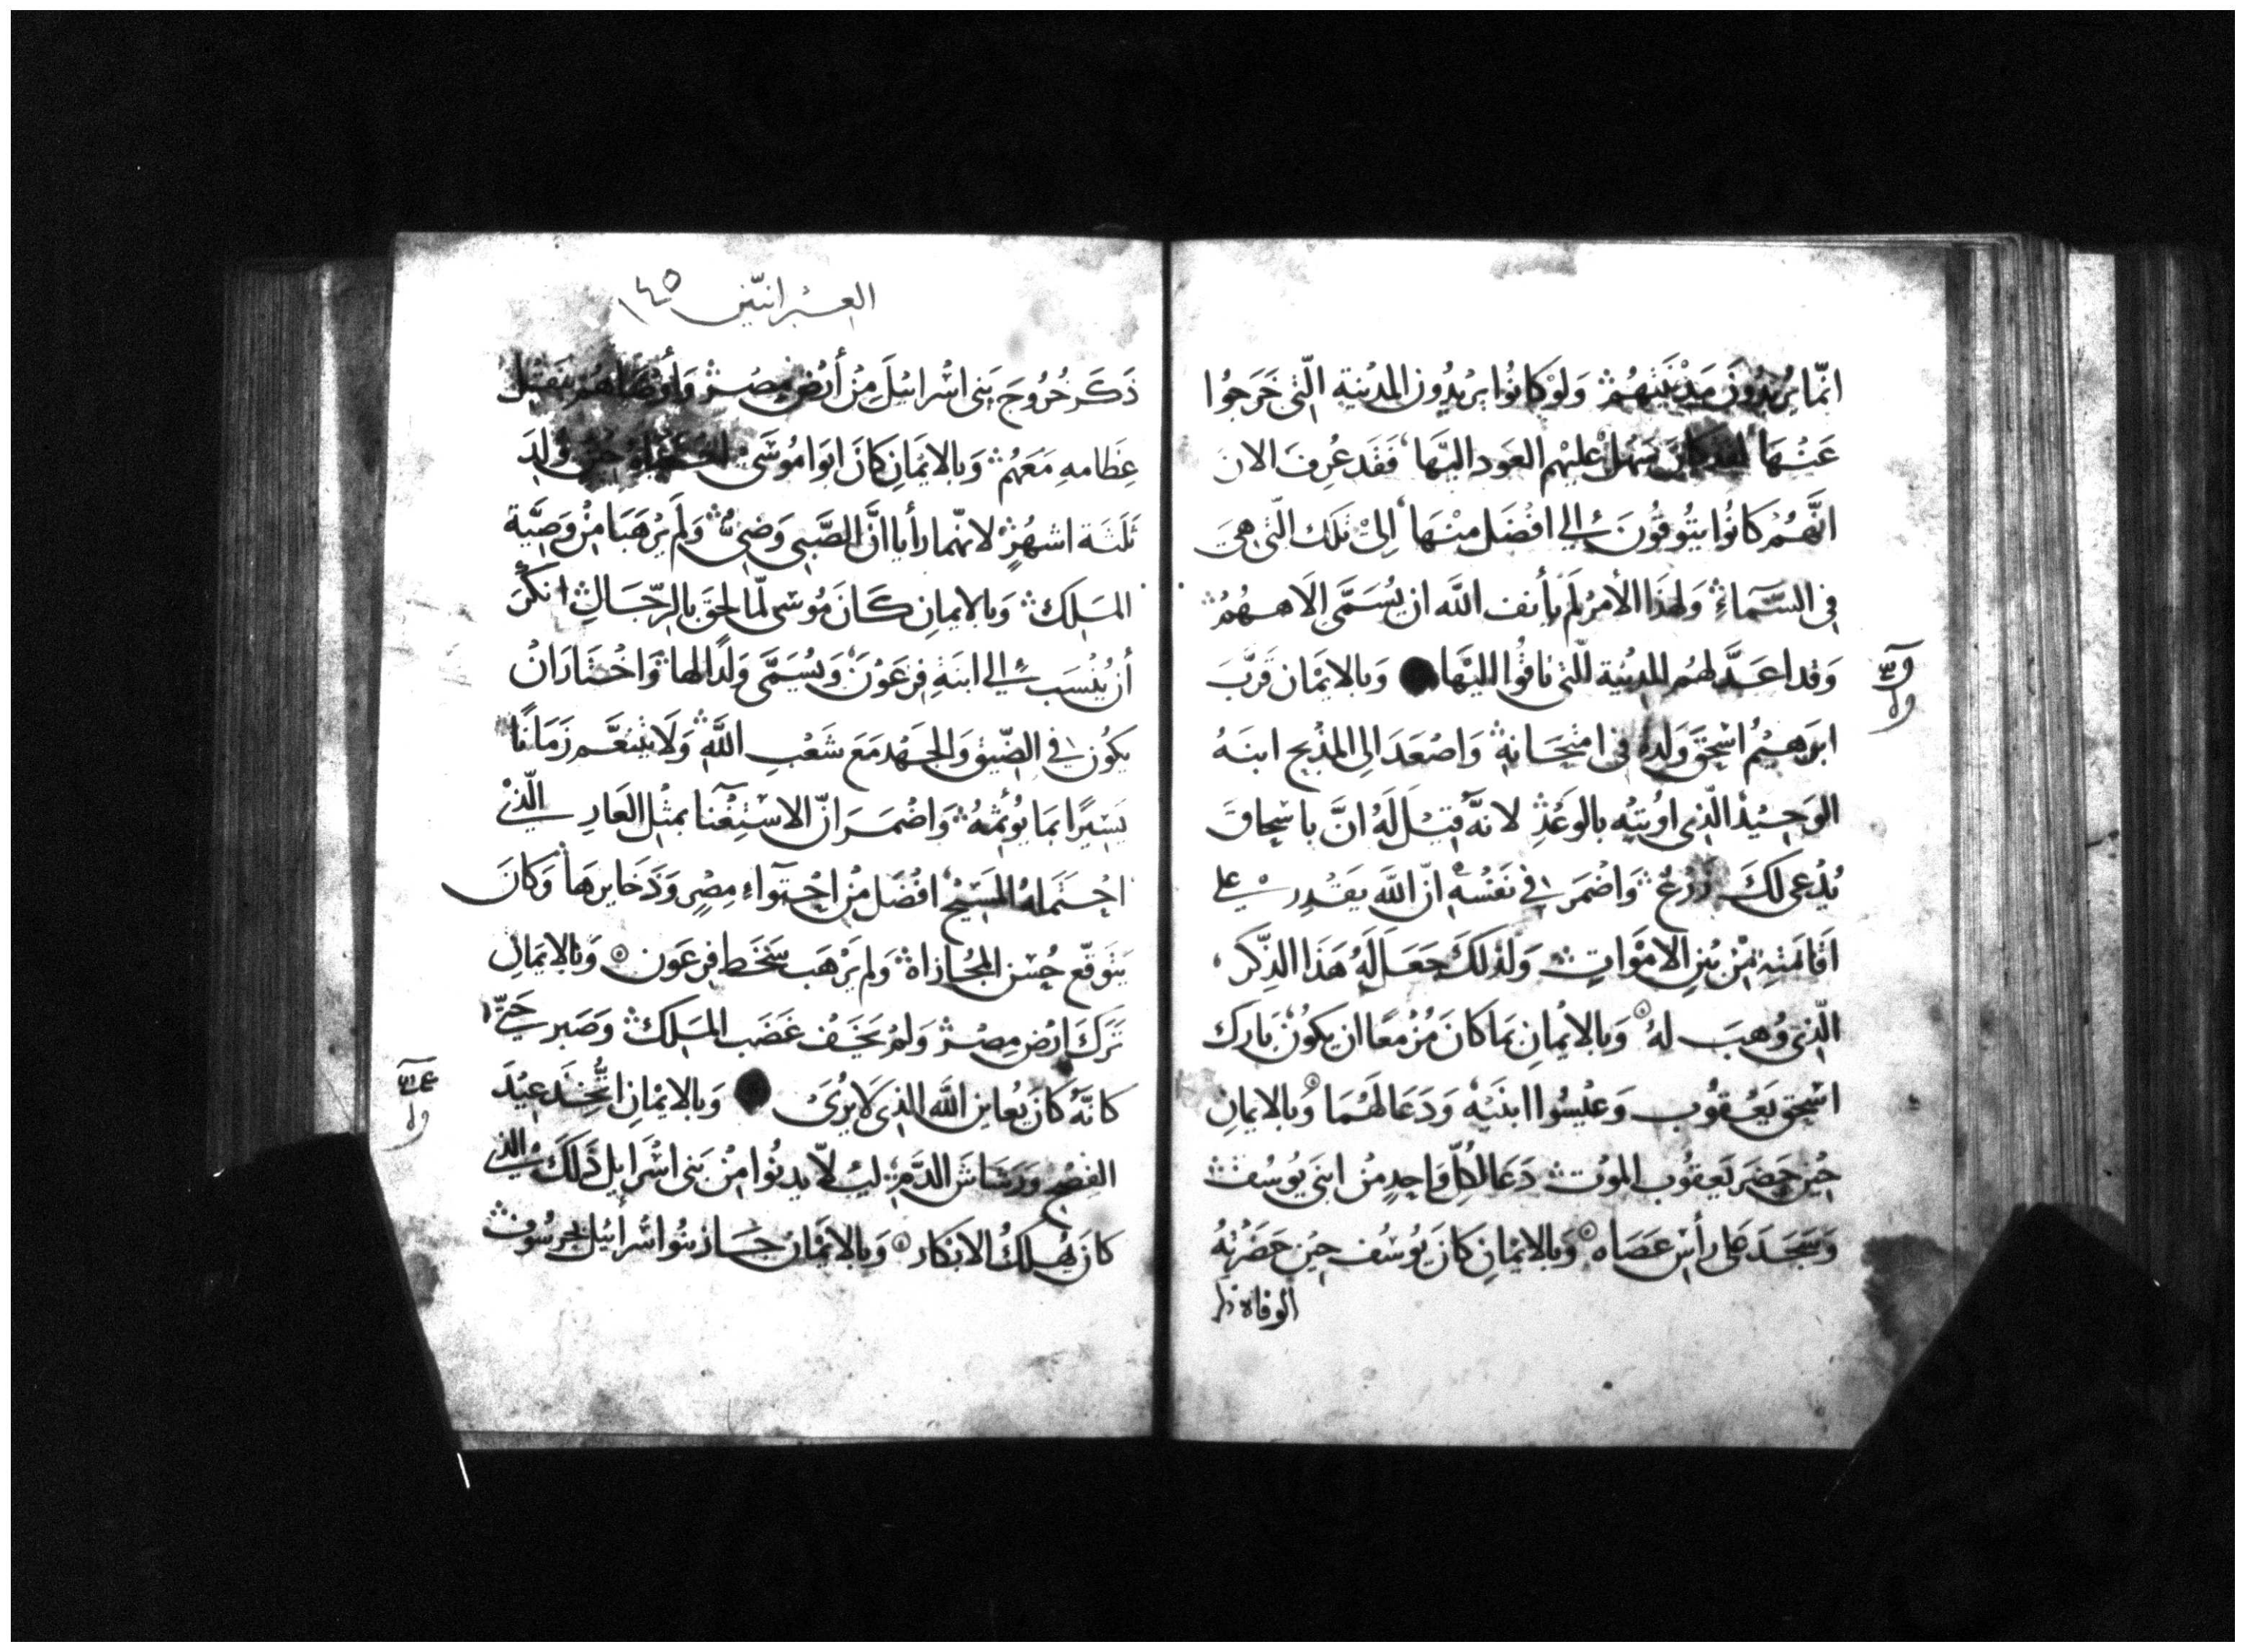 انّما يُريدُونَ مَدِيْنَتَهُمْ وَلَوْ كانُوا يريْدُون المدُنية الّتي خَرَجُوا
عَنْهَا لقد كان يَسْهل عليْهم العَود اليْها فَقَد عُرِفَ الان
انَّهُمْ كانُوا يتُوقُونَ الي افْضَل مِنْهَا اِليْ تلك الّتي هيَ
في السَّمآءِ وَلهذَا الأمرُ لَم يأنف اللَّه ان يُسَمَّى الَاههُمْ
وَقد اعَدَّ لهُم المدِيْنة الّتي تاقُوا اليْها وَبالايمَان قَرَّبَ
ابرَهِيْمُ اسْحقَ وَلدهُ في امْتِحَانهِ وَاصْعَدَ الي المذْبح ابنَهُ
الوَحِيْد الّذي اوُتيْه بالوَعْدِ لانَّه قيْل لَهُ انَّ باسْحاقَ
يُدْعَي لكَ زَرْعٌ وَاضْمَرَ في نَفْسُهِ انّ اللّه يَقْدِر علي
اقَامَتِهِ مِنْ بَيْنِ الامْوَاتِ وَلذلكَ جَعَل لَهُ هَذَا الذِّكر
الّذي وُهبَ لهُ وَبالايْمانِ بمَا كانَ مُزْمعًا ان يكونْ بَارَك
اسْحق يَعْقُوب وَعيْسُوا ابنَيْه وَدَعَا لَهُمَا وَبالايمانِ
حيْن حَضَرَ يَعقُوب الموْت دَعَا لكلّ وَاحدٍ مْن ابنَي يُوسُفَ
وَسَجَدَ عَلي رأسْ عَصَاه وَبالايمْانِ كانَ يُوسُف حيْن حَضَرَتهُ
الوفاه
العبرانيّين ١٤٥
ذَكَر خُرُوجَ بَنِي اسْرائيْلَ مِنْ أرْضِ مصْر وَأوْصَاهُمْ بنقْل
عِظامهِ مَعَهُمْ وَبالايمَانِ كانَ ابوَا مُوسَي حيْن وُلِدَ
ثلَثَة اشهُرٍ لانهّما رأيا انَّ الصَّبي وَضِيّ وَلَم يرْهَبَا مِنْ وَصِيَّة
المَلِك وَبالايمانِ كَانَ مُوسَي لمّا لحِقَ بالرّجَالِ انكَرَ
أن يُنْسَبَ الي ابنَةِ فِرعَوْنَ وَيُسَمَّي وَلَدًا لهَا وَاخْتَارَ انْ
يكُون في الضّيْق وَالجَهْد مَعَ شَعْبِ اللّهِ وَلَا يتنعَّم زَمَانًا
يَسْيرًا بمَا يُوثمُهُ وَاضْمَرَ انّ الاسْتِغْنا بمثْل العَارِ الّذيْ
احْتَمَلهُ المَسِيْح افضَل مِنْ احْتوَآءِ مِصْرٍ وَذَخَايرهَا وَكانَ
يَتوَقّع حُسْن المجُازاة وَلم يَرْهَب سَخَط فِرعَون وَبالايمَانِ
تَرَكَ ارْض مِصْر وَلمْ يَخَف غضَب المَلِك وَصَبر حَتّي
كانّهُ كانَ يُعاين اللّه الذي لَا يُرَي وَبالايْمانِ اتّخَذ عيْدَ
الفِصْح وَرَشاشَ الدَّم ليْلّا يدنُوا مِنْ بَني اسْرَايل ذلكَ الذي
كانَ يُهلكُ الابكار وَبالايمْان جَاز بنُوا اسْرائيْل بحرسُوف